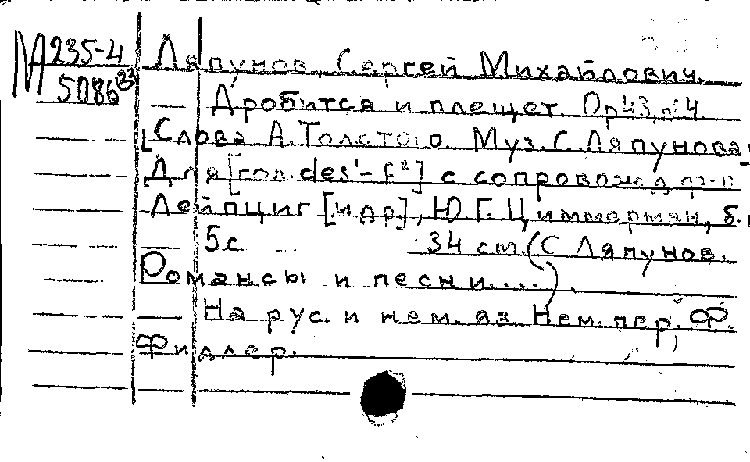 М 235-4
5086²³
Ляпунов, Сергей Михайлович.
Дробится и плещет. Op 43, №4.
Слова А. Толстого. Муз. С. Ляпунова
Для [гол. des'-f²] с сопровожд. ф-п
Лейпциг [и др], Ю. Г. Циммерман, б. г
5с 34 см. (С Ляпунов.
Романсы и песни...)
На рус. и нем. яз. Нем. пер. Ф.
Фидлер.